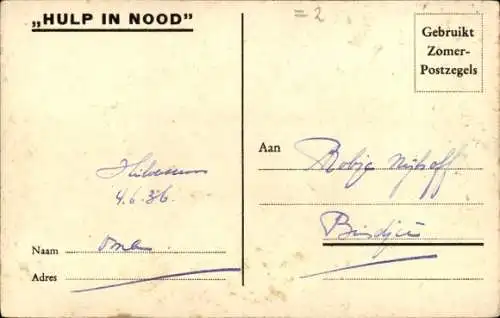 „HULP IN NOOD"
= 2
Gebruikt
Zomer-
Postzegels
Hilversum
4.6.36.
Aan Robje Nijhoff
Naam Oma
Adres